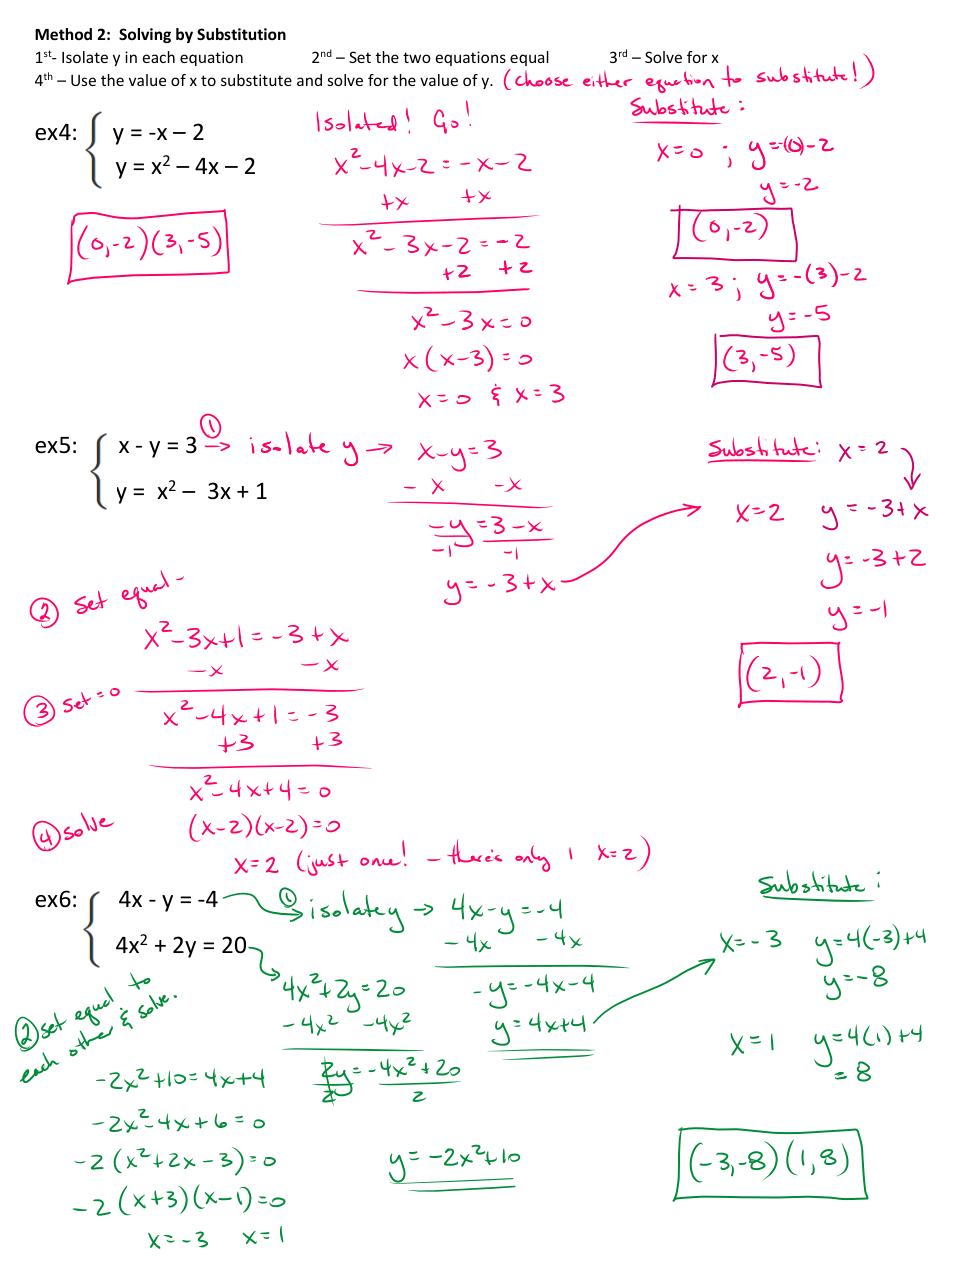 Method 2:  Solving by Substitution
1st- Isolate y in each equation    2nd – Set the two equations equal    3rd – Solve for x
4th – Use the value of x to substitute and solve for the value of y. (choose either equation to substitute!)
ex4: { y = -x – 2
y = x² – 4x – 2
(0,-2)(3,-5)
Isolated! Go!
x²-4x-2=-x-2
+x +x
x²-3x-2=-2
+2 +2
x²-3x=0
x(x-3)=0
x=0 & x=3
Substitute:
x=0 ; y=-(0)-2
y=-2
(0,-2)
x=3 ; y=-(3)-2
y=-5
(3,-5)
ex5: { x - y = 3 ① → isolate y →
y =  x² –  3x + 1
x-y=3
-x -x
-y=3-x
-1 -1
y=-3+x
Substitute: x=2
x=2 y=-3+x
y=-3+2
y=-1
(2,-1)
② Set equal-
x²-3x+1=-3+x
-x -x
③ set=0
x²-4x+1=-3
+3 +3
x²-4x+4=0
④ solve
(x-2)(x-2)=0
x=2 (just once! - there's only 1 x=2)
ex6: { 4x - y = -4
4x² + 2y = 20
① isolate y → 4x-y=-4
-4x -4x
-y=-4x-4
y=4x+4
4x²+2y=20
-4x² -4x²
2y=-4x²+20
2 2
y=-2x²+10
② set equal to
each other & solve.
-2x²+10=4x+4
-2x²-4x+6=0
-2(x²+2x-3)=0
-2(x+3)(x-1)=0
x=-3 x=1
Substitute:
x=-3 y=4(-3)+4
y=-8
x=1 y=4(1)+4
=8
(-3,-8)(1,8)